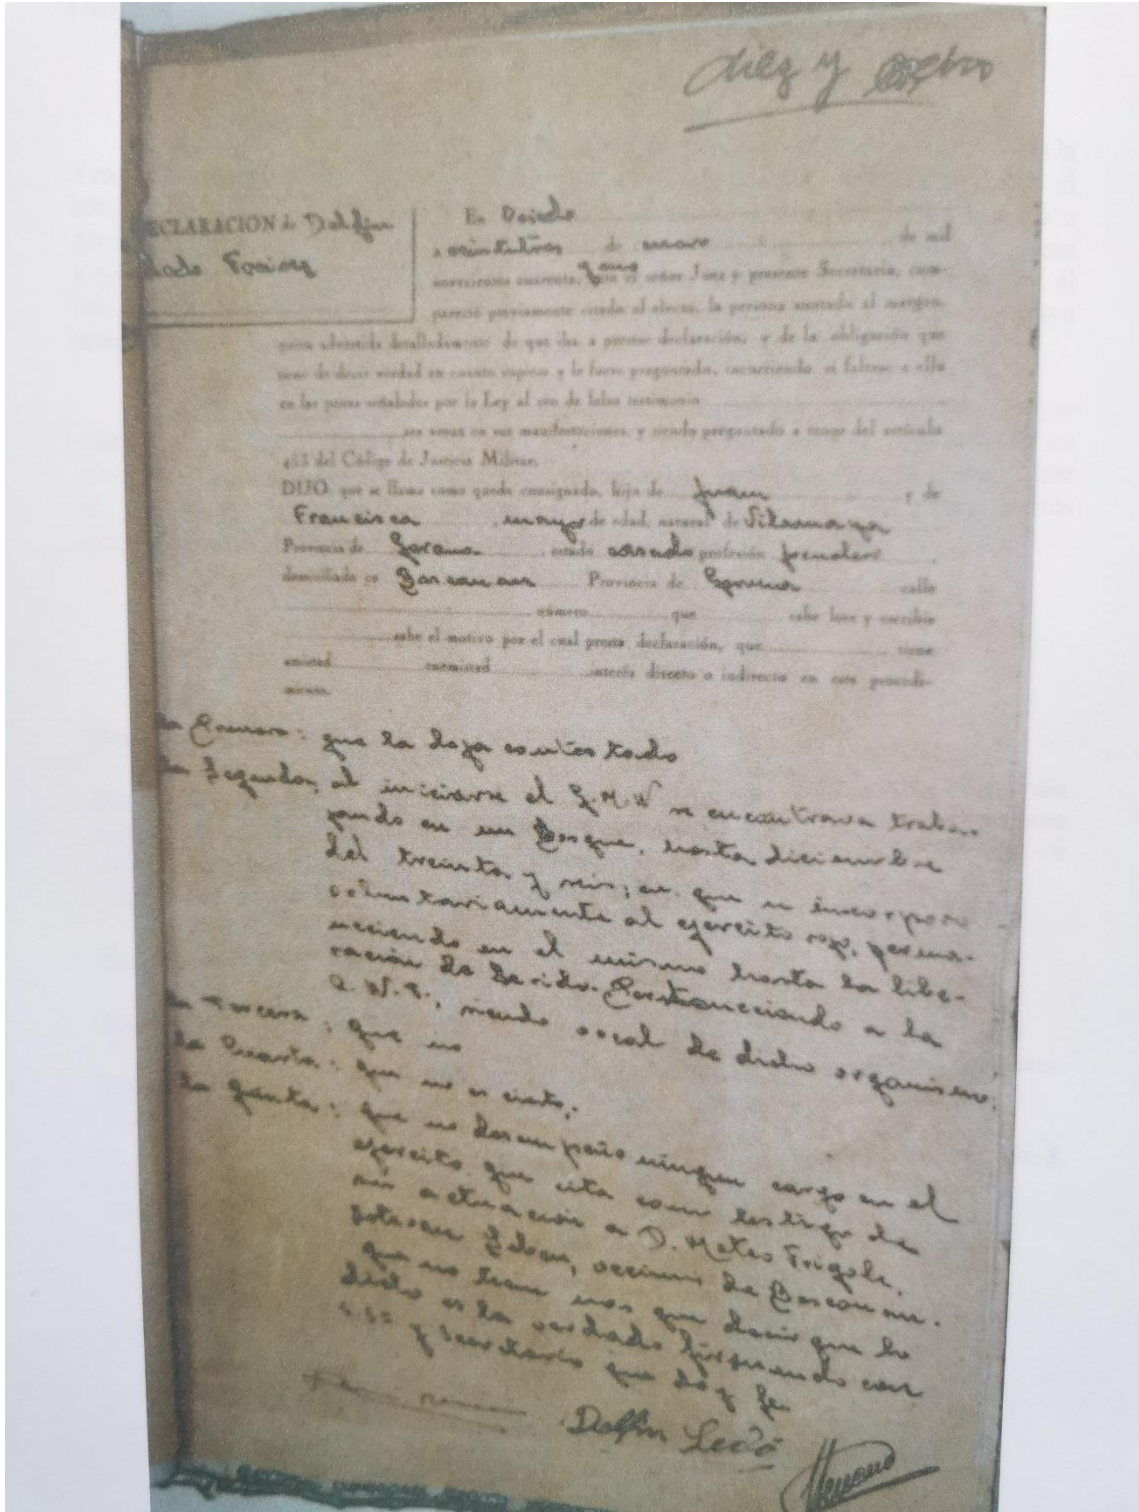 diez y ocho
ECLARACION de Dolfin
En Oviedo
a veintitres de mayo de mil
novecientos cuarenta, y uno ante el señor Juez y presente Secretario, com-
pareció previamente citado al efecto, la persona anotada al margen,
quien advertida detalladamente de que iba a prestar declaración, y de la obligación que
tiene de decir verdad en cuanto supiere y le fuere preguntado, incurriendo si faltase a ella
en las penas señaladas por la Ley al reo de falso testimonio
ser veraz en sus manifestaciones, y siendo preguntado a tenor del artículo
453 del Código de Justicia Militar;
DIJO: que se llama como queda consignado, hijo de Juan y de
Francisca, mayor de edad, natural de Vilamaya
Provincia de Gerona estado casado profesión jornalero
domiciliado en Bascanar Provincia de Gerona calle
número que sabe leer y escribir
sabe el motivo por el cual presta declaración, que tiene
amistad enemistad interés directo o indirecto en este procedi-
miento.
la Primera: que la deja contestado
la Segunda, al iniciarse el G.M.N se encontrava traba-
jando en un Bosque, hasta diciembre
del treinta y seis; en que se incorporo
voluntariamente al ejercito rojo, perma-
neciendo en el mismo hasta la libe-
ración de Perteneciendo a la
C.N.T., siendo vocal de dicho organismo.
la Tercera: que no
la Cuarta: que no es cierto;
la Quinta: que no desempeño ningun cargo en el
ejercito que cita como testigo de
su actuación a D. Mateo Frigola,
vecinos de Bascanar.
que no tiene mas que decir que lo
dicho es la verdad firmando con
S.Sª y Secretario que doy fe
Dolfin Ledó